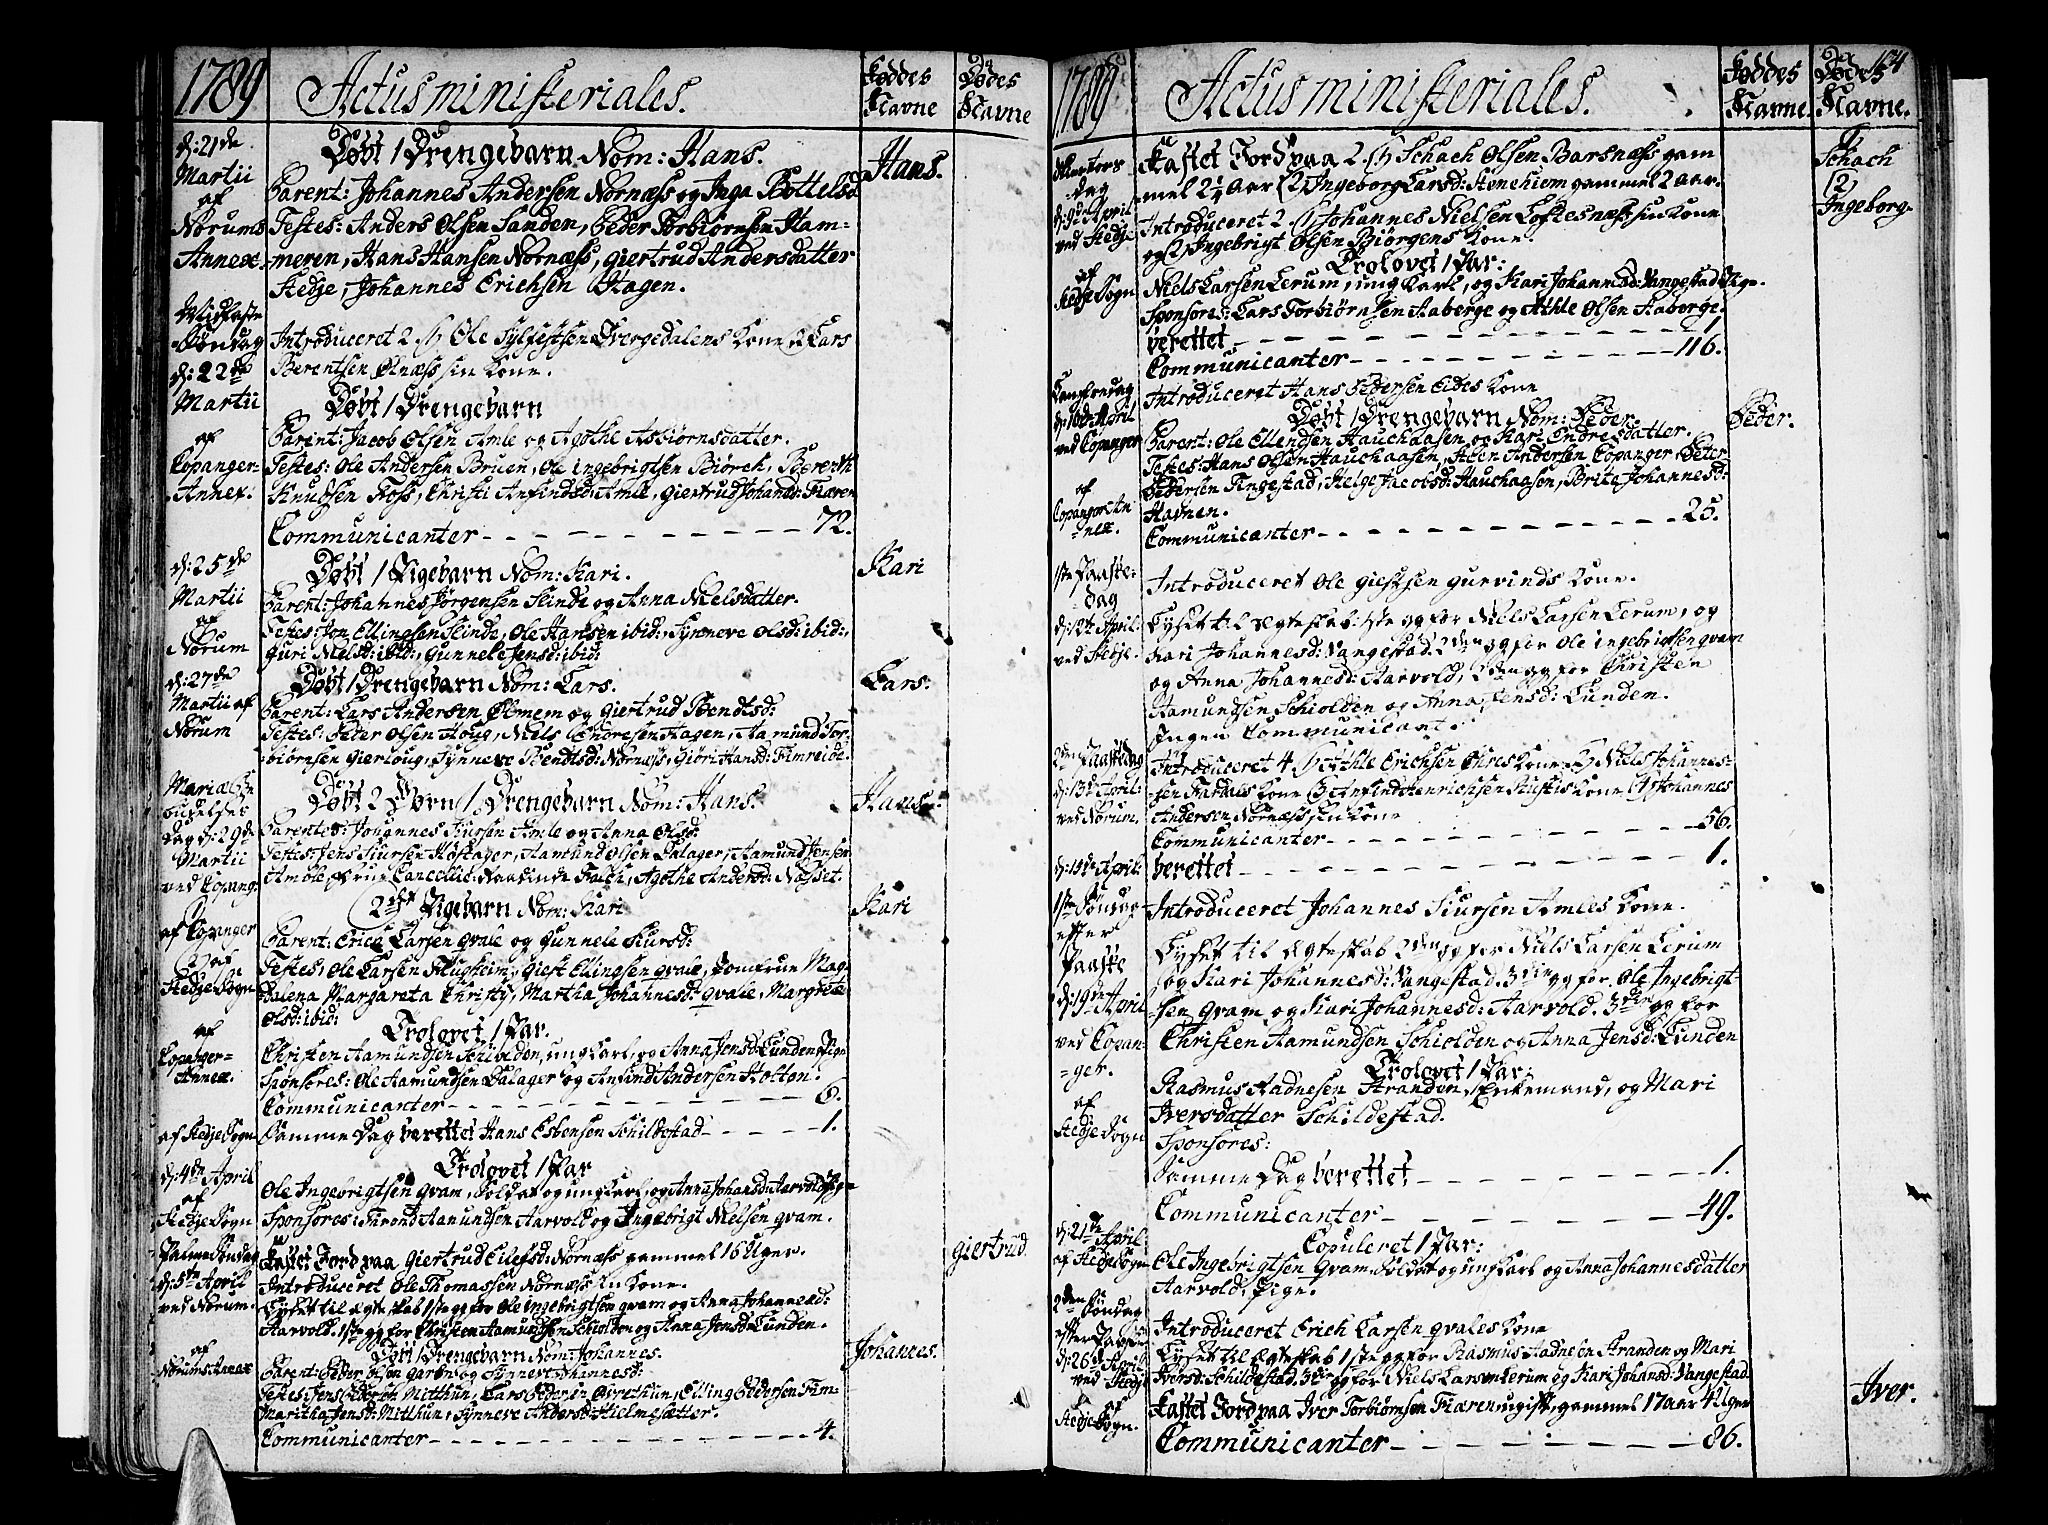 1789 Actus ministeriales. Føddes Navne Dødes Navne
d: 21de Martii af Norums Annex
Døbt 1 Drengebarn Nom: Hans. Hans.
Parent: Johannes Andersen Nornæss og Inga Bottelsd
Testes: Anders Olsen Sanden, Peder Torbiørnsen Ham-
meren, Hans Hansen Nornæss, Giertrud Andersdatter
Stedje, Johannes Erichsen Hagen.
Midfaste Søndag d: 22de Martii
Introduceret 2 (1) Ole Sylfestsen Dvergedalens Kone (2 Lars
Berentsen Ølnæss sin Kone.
Døbt 1 Drengebarn
af Copanger- Annex:
Parent: Jacob Olsen Amle og Agothe Asbiørnsdatter.
Testes: Ole Andersen Bruen, Ole Ingebrigtsen Biørck, Berenth
Knudsen Foss, Christi Anfindsd: Amle, Giertrud Johansd: Fiæren
Communicanter 72.
d: 25de Martii af Norum
Døbt 1 Pigebarn Nom: Kari. Kari
Parent: Johannes Jørgensen Slinde og Anna Nielsdatter.
Testes: Jon Ellingsen Slinde, Ole Hansen ibid:, Synneve Olsd: ibid:,
Guri Nielsd: ibid:, Gunnele Jensd: ibid:
d: 27de Martii af Norum
Døbt 1 Drengebarn Nom: Lars. Lars.
Parent: Lars Andersen Olmem og Giertrud Bendtsd:
Testes: Peter Olsen Houg, Niels Endresen Hagen, Aamund Tor-
biørnsen Gierloug, Synneve Bendtsd: Nornæss, Giøri Hansd: Fimreide.
Mariæ Be budelses Dag d: 29de Martii ved Copang:
Døbt 2 Børn 1 Drengebarn Nom: Hans. Hans.
Parentes: Johannes Siursen Amle og Anna Olsd:
Testes: Jens Siursen Høstager, Aamund Olsen Dalager, Aamund Jensen
Amble, Frue Cancellie-Raadinde Falch, Agothe Andersd: Næsset.
af Copanger
2det Pigebarn Nom: Kari Kari
(2) af Stedje Sogn
Parent: Erich Larsen Qvale og Gunnele Siursd:
Testes: Ole Larsen Flugheim, Giest Ellingsen Qvale, Jomfrue Mag-
dalena Margareta Christy, Martha Johannesd: Qvale, Margrete
Olsd: ibid:
af Copanger= Annex.
Trolovet 1 Par.
Christen Aamundsen Schiolden, ung Karl, og Anna Jensd: Lunden Pige
Sponsores: Ole Aamundsen Dalager og Anfind Andersen Holten.
Communicanter 6.
af Stedje Sogn Samme Dag berettet Hans Esbensen Schildestad 1.
d: 4de April af Stedje Sogn
Trolovet 1 Par
Ole Ingebrigtsen Qvam, Soldat og ung Karl, og Anna Johansd: Aarvold Pige
Sponsores: Thrond Aamundsen Aarvold og Ingebrigt Nielsen Qvam.
Palme Søndag d: 5te April ved Norum.
Kastet Jord paa Giertrud Eilefsd: Nornæss gammel 16 Uger. Giertrud
Introduceret Ole Thomassen Nornæss sin Kone.
Lyset til Ægteskab 1ste g: for Ole Ingebrigtsen Qvam og Anna Johannesd:
Aarvold. 1ste gg for Christen Aamundsen Schiolden og Anna Jensd: Lunden.
af Norums Annex
Døbt 1 Drengebarn Nom: Johannes. Johannes.
Testes: Jens Pedersen Nitthun, Lars Pedersen Øvrethun, Elling Pedersen Fim-
Maritha Jensd: Nitthun, Synneve Andersd: Hielmesætter.
Communicanter 4.
1789 Actus ministeriales. Føddes Navne. Dødes Navne. 164
d: 9de April ved Stedje
Kastet Jord paa 2. (1) Schach Olsen Barsnæss gam (1 Schach
mel 2 1/4 Aar (2) Ingeborg Larsd: Stenehiem gammel 2 aar. (2) Ingeborg.
Introduceret 2. (1) Johannes Nielsen Loftesnæss sin Kone
og (2) Ingebrigt Olsen Biørgens Kone.
af Stedje Sogn
Trolovet 1 Par:
Niels Larsen Lerum, ung Karl, og Kari Johannesd: Vangestad Pige.
Sponsores: Lars Torbiørnsen Aaberge og Athle Olsen Aaberge.
berettet 1.
Communicanter 116.
Langfredag d: 10de April ved Copanger
Introduceret Hans Pedersen Eides Kone
Døbt 1 Drengebarn Nom: Peder. Peder.
Parent: Ole Ellendsen Hauchaasen og Kari Endresdatter.
af Copanger An nex
Testes: Hans Olsen Hauchaasen, Sten Andersen Copanger, Peter
Pedersen Tingestad, Helge Jacobsd: Hauchaasen, Brite Johannesd:
Havnen.
Communicanter 25.
1ste Paaske- dag d: 12te April ved Stedje.
Introduceret Ole Giestsen Gurvinds Kone.
Lyset til Ægteskab: 1ste gg for Niels Larsen Lerum, og
Kari Johannesd: Vangestad. 2den gg for Ole Ingebrigtsen Qvam
og Anna Johannesd: Aarvold, 2den gg for Christen
Aamundsen Schiolden og Anna Jensd: Lunden.
Ingen Communicant.
2den Paaskedag d: 13de April ved Norum.
Introduceret 4. (1) Athle Erichsen Ehres Kone (2) Niels Johannes-
sen Fardals Kone (3 Anfind Henrichsen Hustis Kone (4) Johannes
Andersen Nornæss sin Kone
Communicanter 56.
d: 14de April: berettet 1.
1ste Søndag efter Paaske d: 19de April ved Copan- ger.
Introduceret Johannes Siursen Amles Kone.
Lyset til Ægteskab 2den gg for Niels Larsen Lerum
og Kari Johannesd: Vangestad. 3die gg for Ole Ingebrigt-
sen Qvam og Kari Johannesd: Aarvold. 3die gg for
Christen Aamundsen Schiolden og Anna Jensd: Lunden
af Stedje Sogn
Trolovet 1 Par:
Rasmus Aadnesen Stranden, Enkemand, og Mari
Iversdatter Schildestad.
Sponsores:
Samme Dag berettet 1.
Communicanter 49.
d: 21de April af Stedje Sogn
Copuleret 1 Par:
Ole Ingebrigtsen Qvam, Soldat og ung Karl og Anna Johannesdatter
Aarvold, Pige.
2den Søndag efter Paaske d: 26de April ved Stedje
Introduceret Erich Larsen Qvales Kone
Lyset til Ægteskab 1ste gg for Rasmus Aadnesen Stranden og Mari
Iversd: Schildestad. 3die gg for Niels Larsen Lerum og Kari Johansd: Vangestad.
af Stedje Sogn.
Kastet Jord paa Iver Torbiørnsen Fiæren ugift, gammel 17 aar 4 Uger Iver.
Communicanter 86.